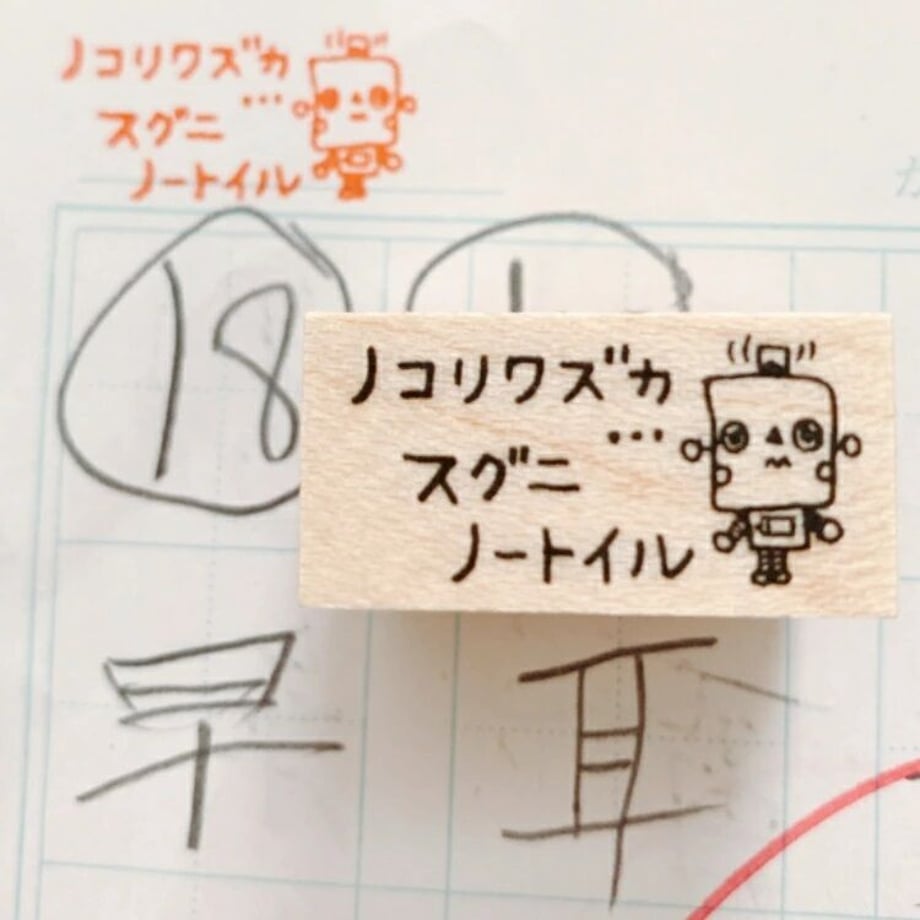 ノコリワズカ
…
スグニ
ノートイル
18
ノコリワズカ
…
スグニ
ノートイル
早
耳